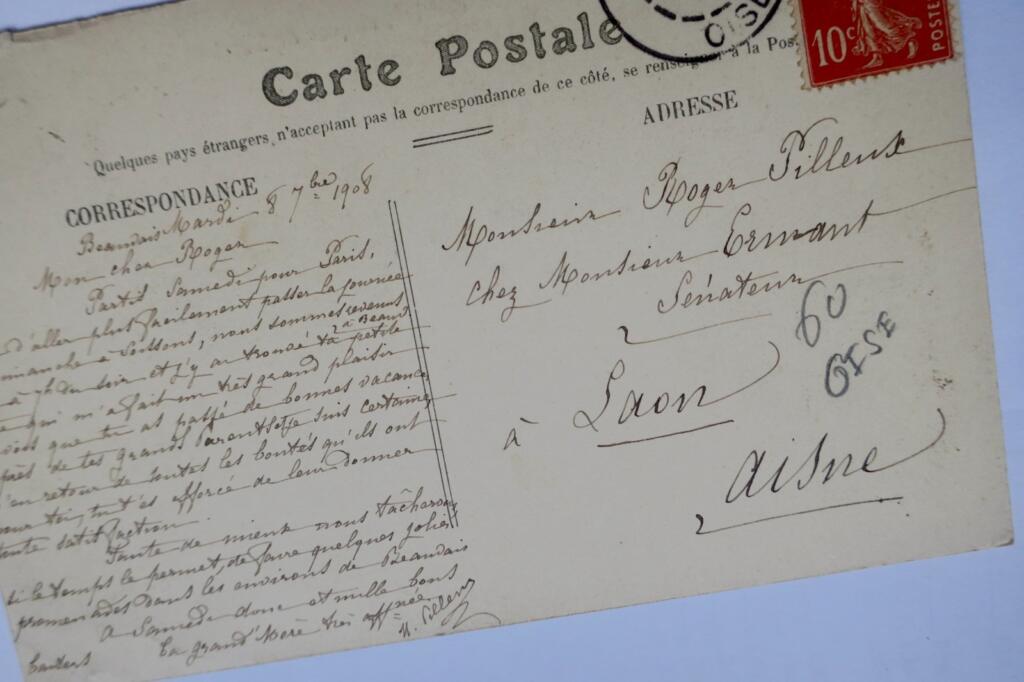 Carte Postale
Quelques pays étrangers n'acceptant pas la correspondance de ce côté, se renseigner à la Pos
CORRESPONDANCE
ADRESSE
OISE
10c
POSTE
Beauvais Mardi 8 7bre 1908
Mon cher Roger
Partis Samedi pour Paris,
d'aller plus facilement passer la journée
manche à Soissons, nous sommes revenus
à 7h du soir et j'y ai trouvé ta petite
à Beauv
qui m'a fait un très grand plaisir
vois que tu as passé de bonnes vacances
près de tes grands parents et je suis certaine
qu'en retour de toutes les bontés qu'ils ont
pour toi, tu t'es efforcé de leur donner
toute satisfaction.
Tante de mieux nous tâcherons
si le temps le permet, de faire quelques jolies
promenades dans les environs de Beauvais
A Samedi donc et mille bons
baisers
Ta grand'Mère très affnée
Monsieur Roger Pilleux
chez Monsieur Ermant
Sénateur
à Laon
Aisne
60
OISE